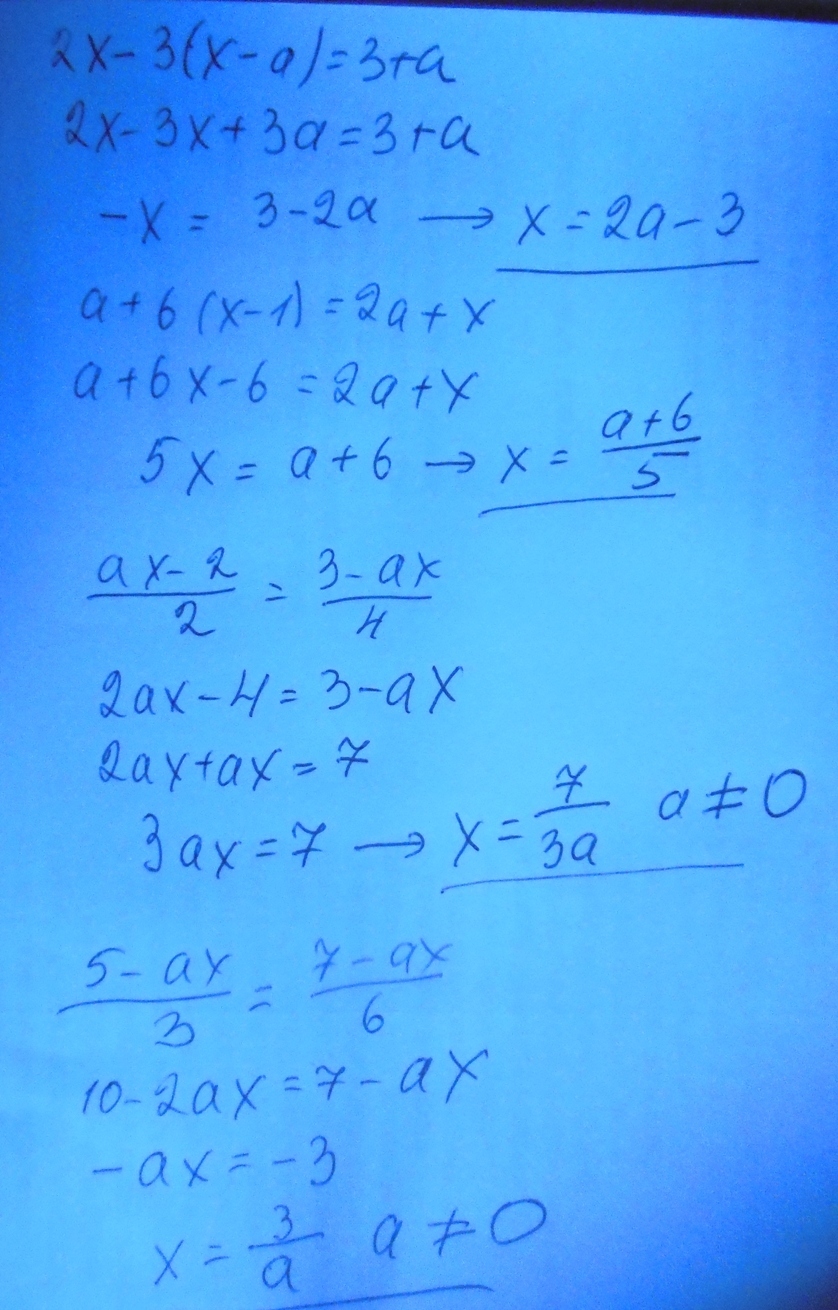 2x-3(x-a)=3+a
2x-3x+3a=3+a
-x = 3-2a → x=2a-3
a+6(x-1)=2a+x
a+6x-6=2a+x
5x=a+6 → x= (a+6)/5
(ax-2)/2 = (3-ax)/4
2ax-4=3-ax
2ax+ax=7
3ax=7 → x=7/3a a≠0
(5-ax)/3 = (7-ax)/6
10-2ax=7-ax
-ax=-3
x=3/a a≠0